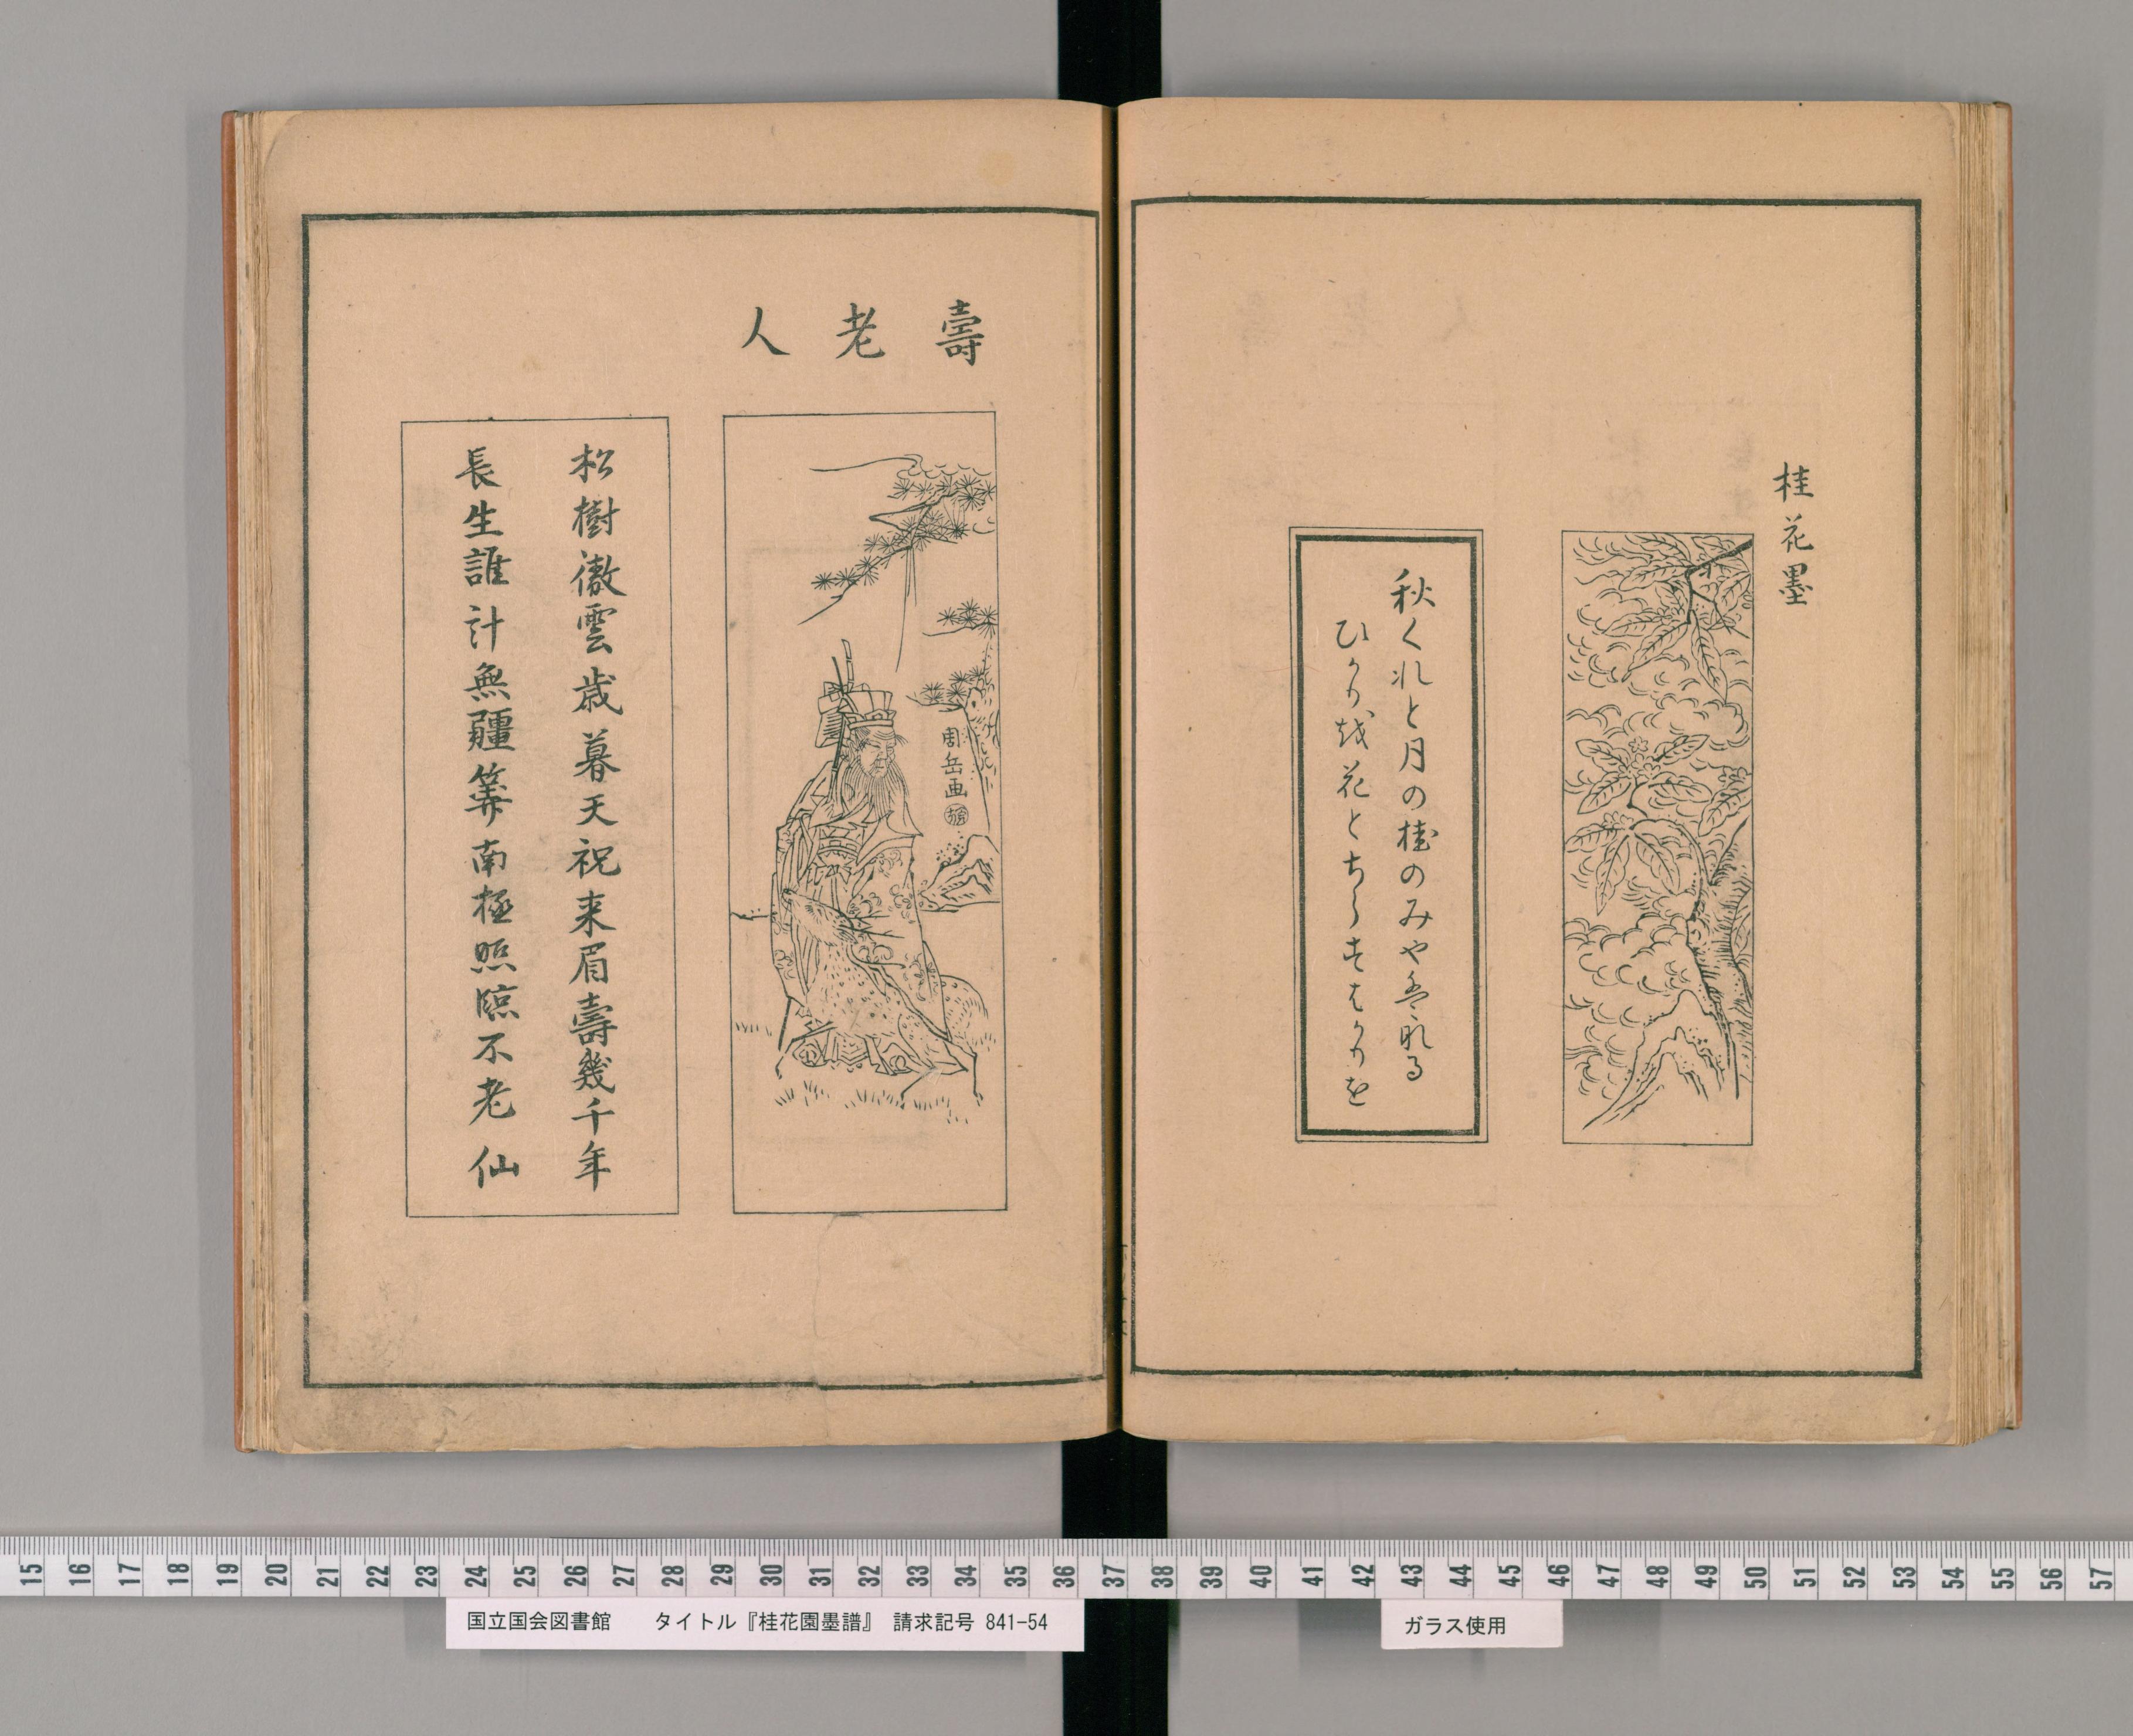 桂花墨
秋くれと月の桂のみやはなる
ひかりを花とちらすはかりを
壽老人
周岳画
松樹徹雲歳暮天祝来眉壽幾千年
長生誰計無疆筭南極照臨不老仙
15 16 17 18 19 20 21 22 23 24 25 26 27 28 29 30 31 32 33 34 35 36 37 38 39 40 41 42 43 44 45 46 47 48 49 50 51 52 53 54 55 56 57
国立国会図書館 タイトル『桂花園墨譜』 請求記号 841-54
ガラス使用